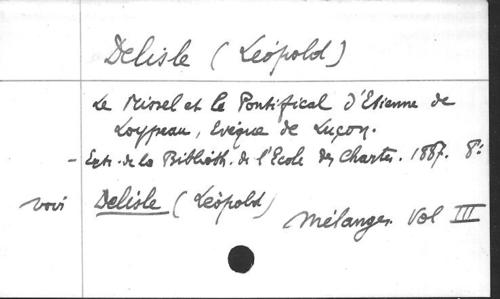 Delisle (Léopold)
Le Missel et le Pontifical d'Etienne de
Loypeau, Evêque de Luçon.
- Extr. de la Biblioth. de l'Ecole des Chartes. 1887. 8º
voir Delisle (Léopold)
Mélanges. Vol III